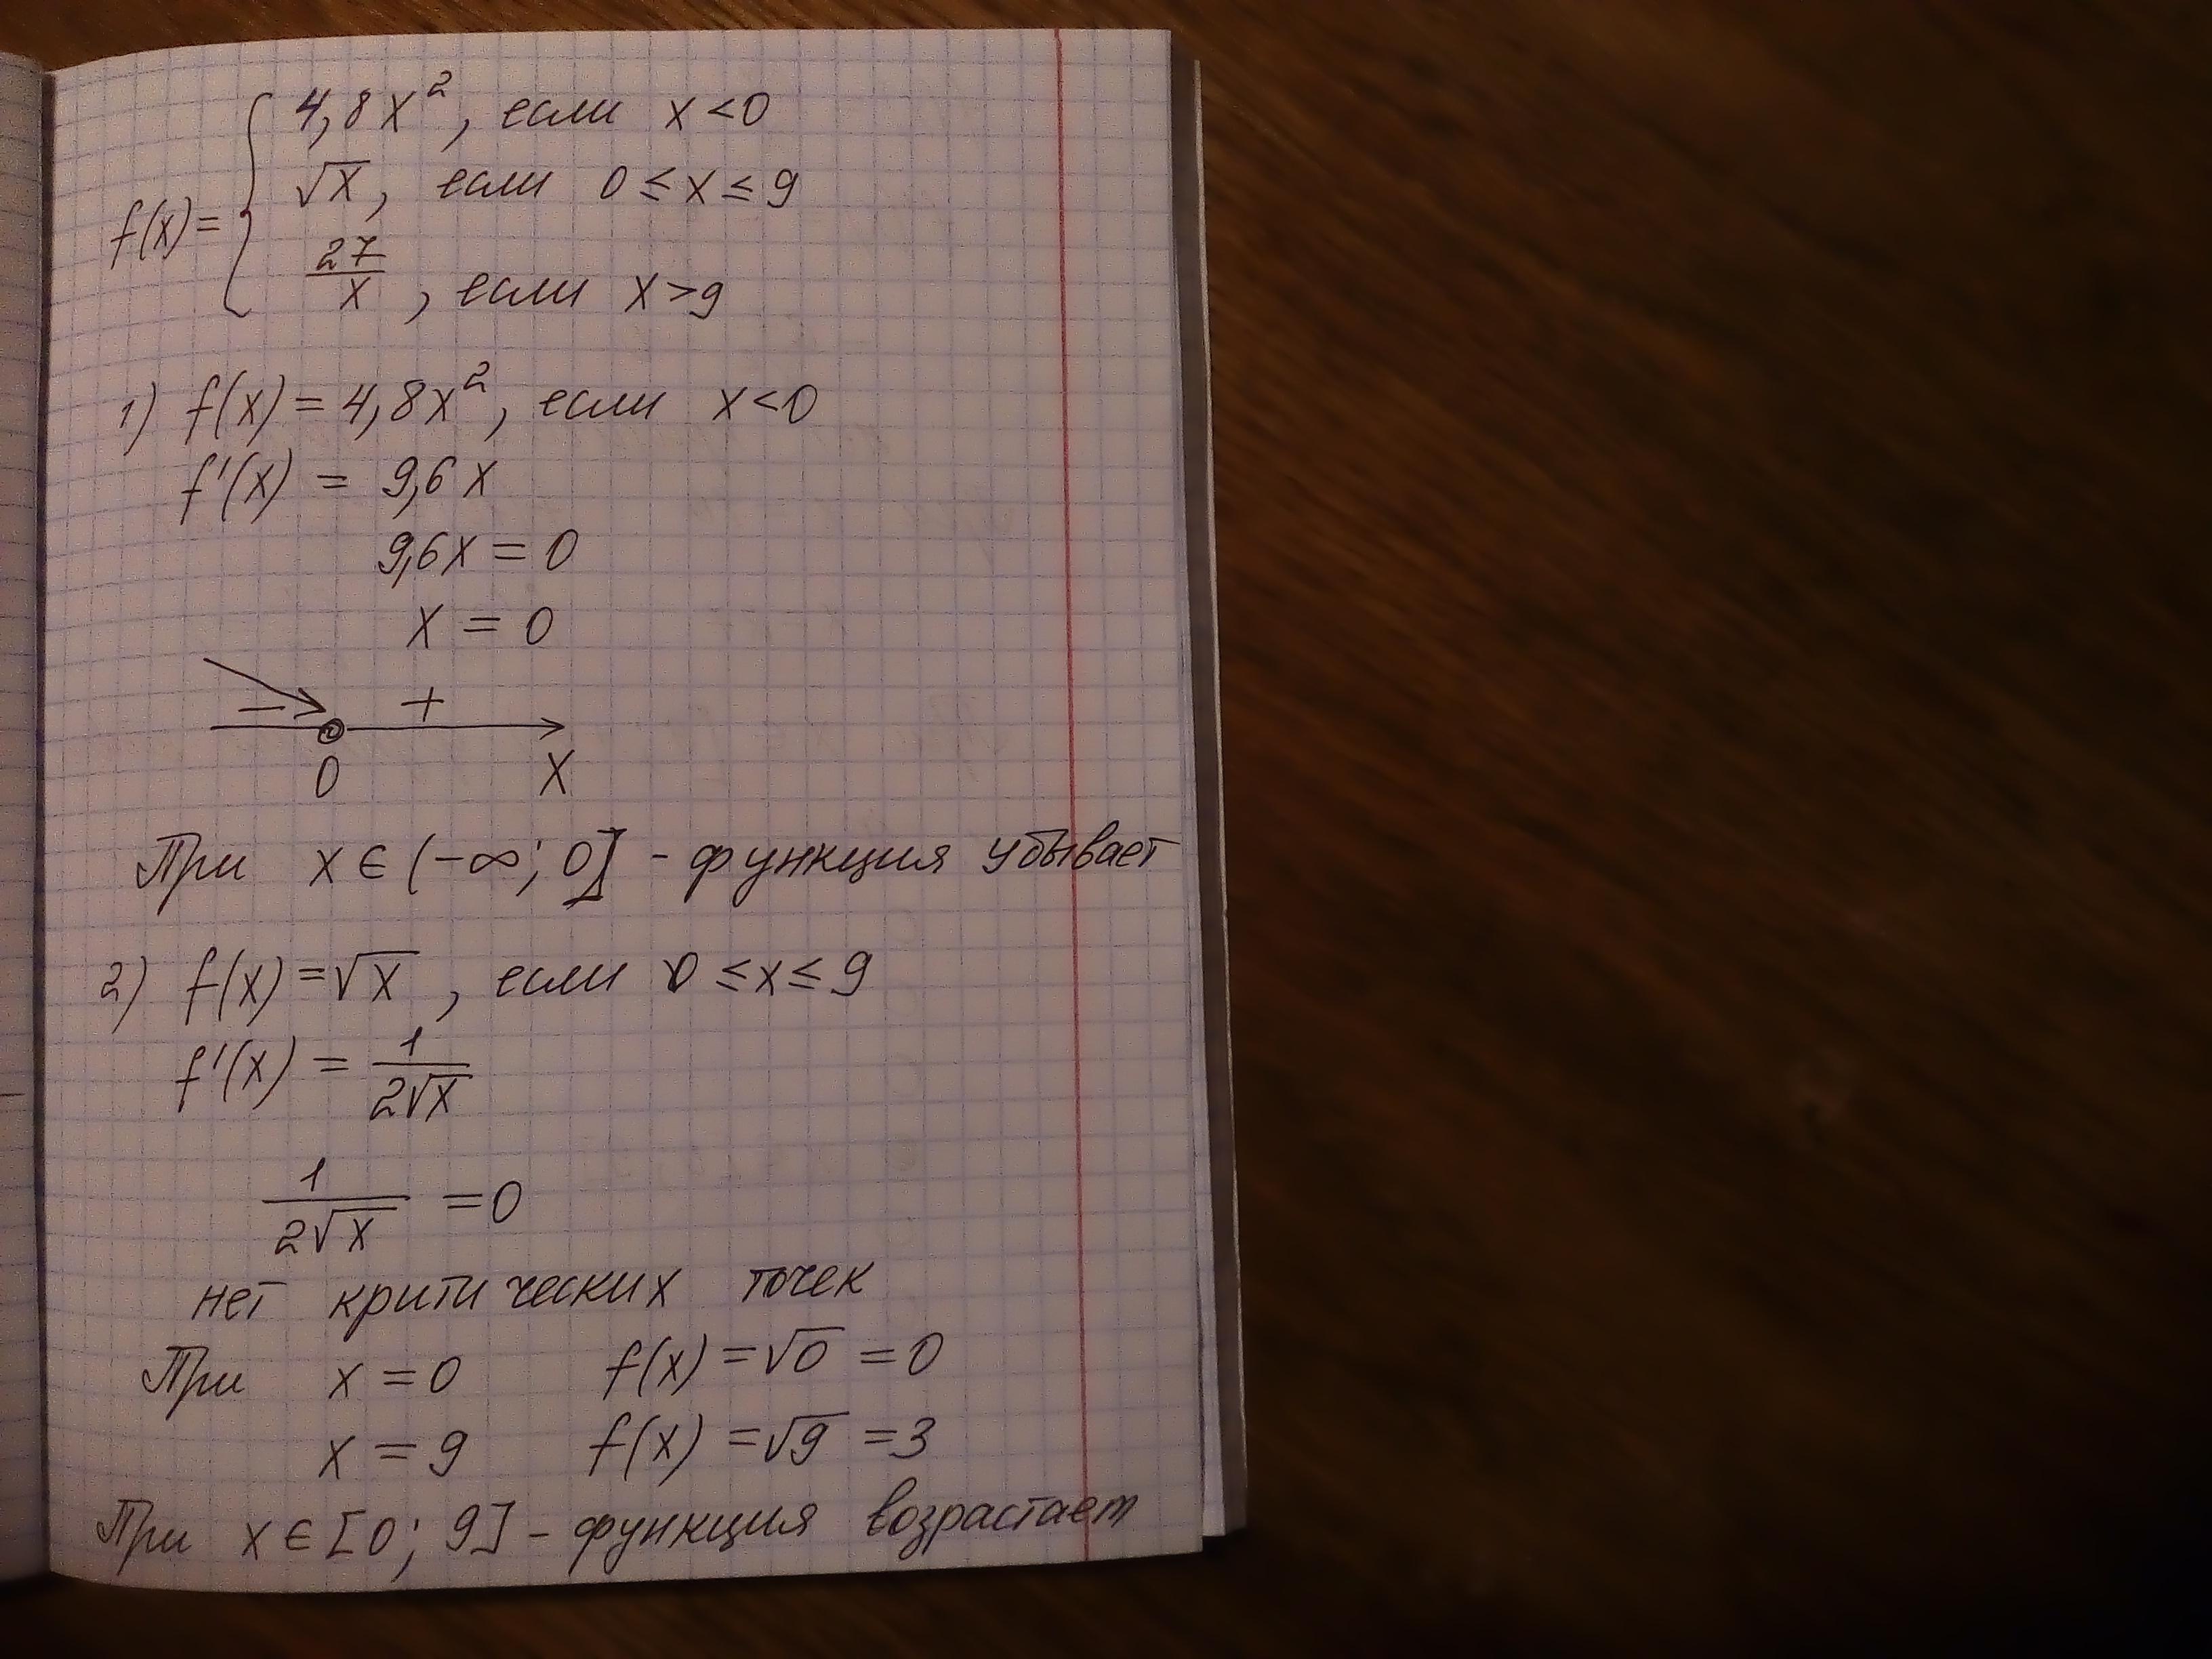 f(x) = { 4,8x², если x < 0
√x, если 0 ≤ x ≤ 9
27/x, если x > 9
1) f(x) = 4,8x², если x < 0
f'(x) = 9,6x
9,6x = 0
x = 0
− +
0 X
При x ∈ (-∞; 0] - функция убывает
2) f(x) = √x, если 0 ≤ x ≤ 9
f'(x) = 1/(2√x)
1/(2√x) = 0
нет критических точек
При x = 0 f(x) = √0 = 0
x = 9 f(x) = √9 = 3
При x ∈ [0; 9] - функция возрастает